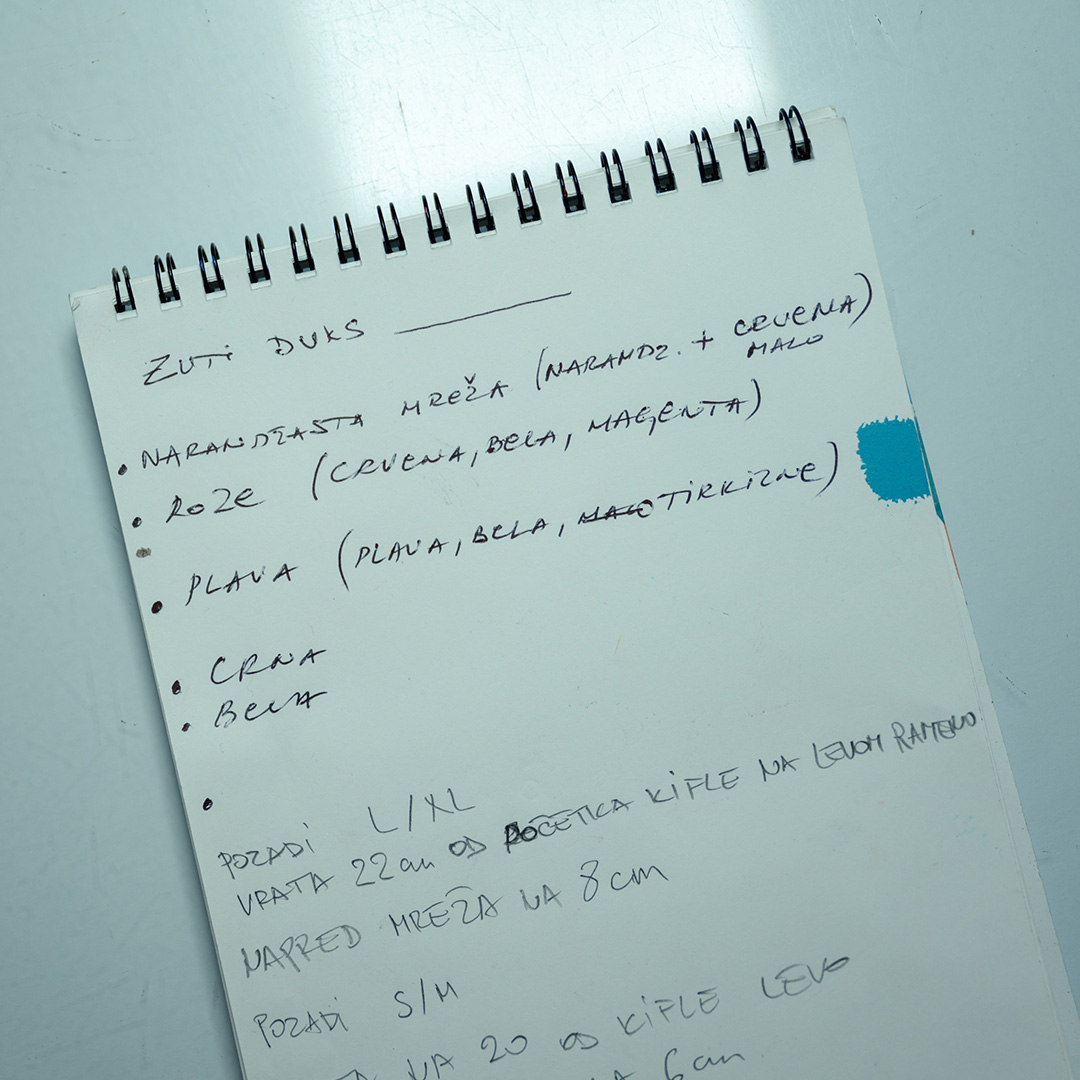 ŽUTI DUKS
• NARANDŽASTA MREŽA (NARANDŽ. + CRVENA)
MALO
• ROZE (CRVENA, BELA, MAGENTA)
• PLAVA (PLAVA, BELA, MALO TIRKIZNE)
• CRNA
• BELA
•
POZADI L/XL
VRATA 22 cm OD POČETKA KIFLE NA LEVOM RAMENU
NAPRED MREŽA NA 8 cm
POZADI S/M
NA 20 OD KIFLE LEVO
6 cm